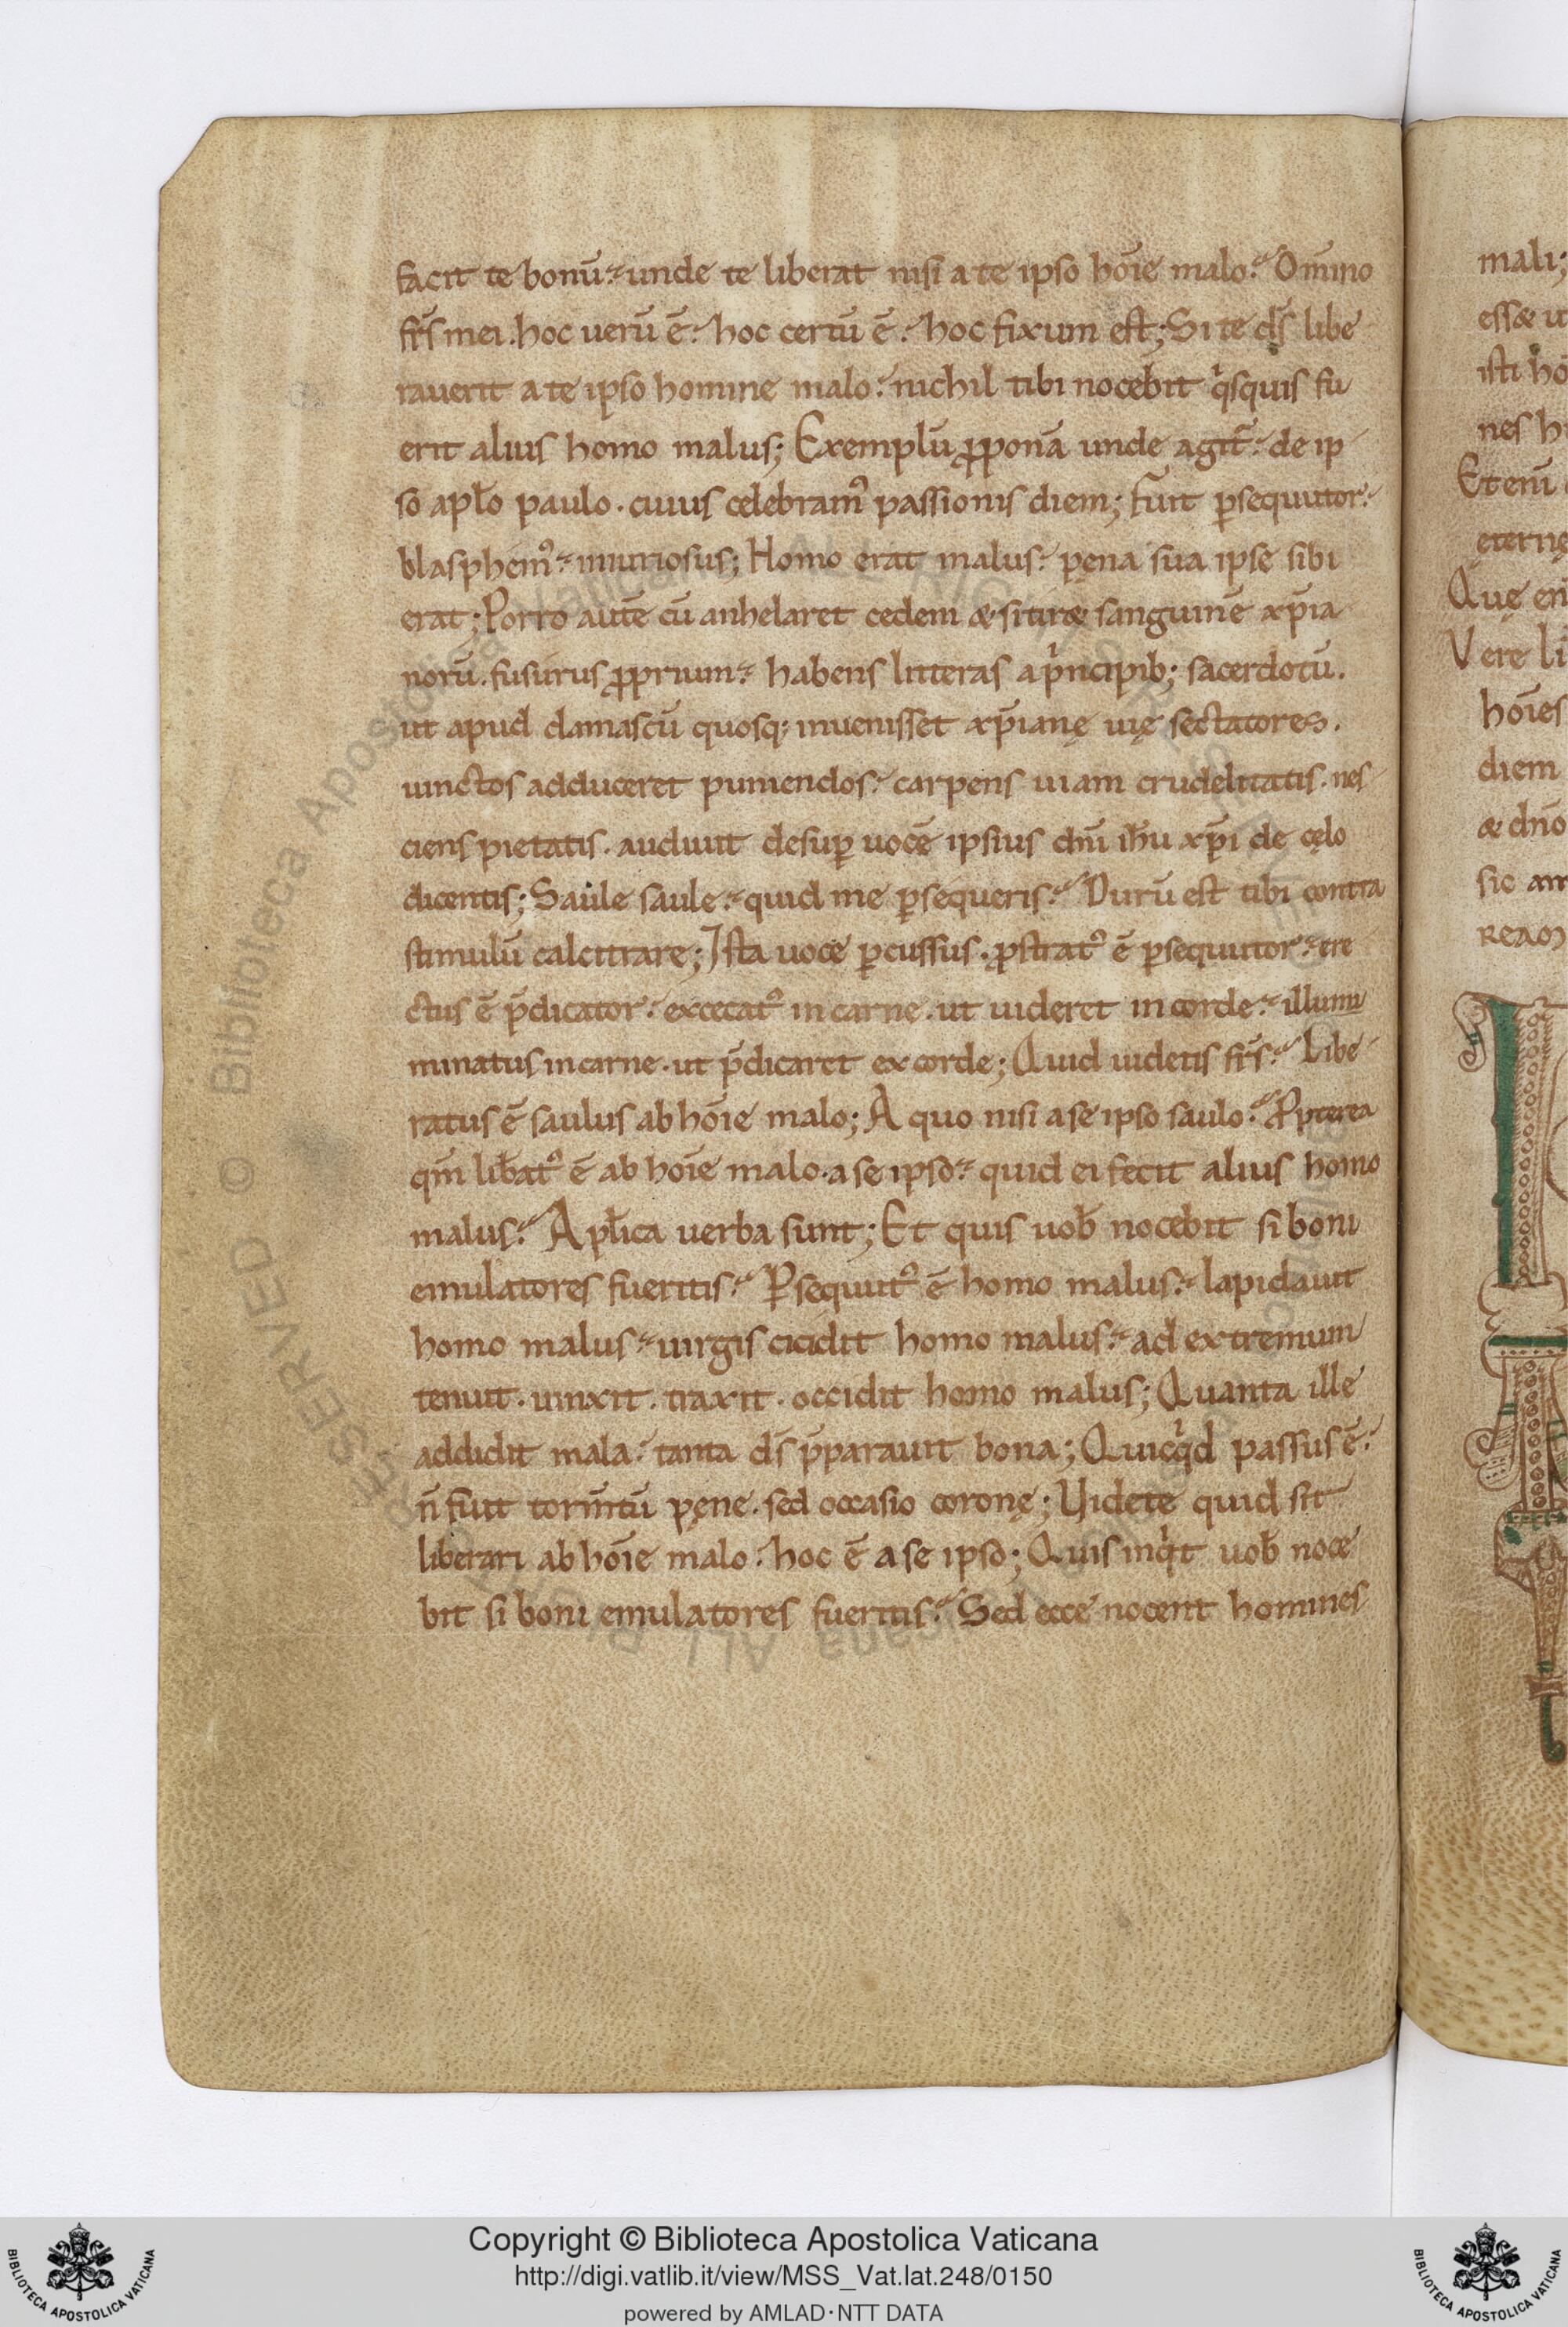 facit te bonū. unde te liberat nisi a te ipso hōie malo? Om̄ino mali;
fr̄s mei. hoc uerū ē. hoc certū ē. hoc fixum est; Si te ds̄ libe
rauerit a te ipso homine malo. nichil tibi nocebit qͥsquis fu
erit alius homo malus; Exemplū ꝓponā unde agit̄. de ip
so apl̄o paulo. cuius celebramꝰ passionis diem; Fuit ꝑsequutor.
blasphemꝰ. iniuriosus; Homo erat malus. pęna sua ipse sibi
erat; Porro autē cū anhelaret cedem & sitir& sanguinē xp̄ia
norū. fusurus ꝓprium. habens litteras a pͥncipib; sacerdotū.
ut apud damascū quosq; inuenisset xp̄ianę uię sectatores.
uinctos adduceret puniendos. carpens uiam crudelitatis. nes
ciens pietatis. audiuit desuꝑ uocē ipsius dn̄i ih̄u xp̄i de cęlo
dicentis; Saule saule. quid me ꝑsequeris? Durū est tibi contra
stimulū calcitrare; Ista uoce ꝑcussus. ꝓstratꝰ ē ꝑsequutor. ere
ctus ē p̄dicator. excecatꝰ in carne. ut uideret in corde. illumi
minatus in carne. ut p̄dicaret ex corde; Quid uidetis fr̄s? Libe
ratus ē saulus ab hōie malo; A quo nisi a se ipso saulo? Ꝓpterea
qm̄ lib̄atꝰ ē ab hōie malo. a se ipso. quid ei fecit alius homo
malus? Apl̄ica uerba sunt; Et quis uob̄ nocebit si boni
emulatores fueritis? Ꝑsequutꝰ ē homo malus. lapidauit
homo malus. uirgis cicidit homo malus. ad extremum
tenuit. uinxit. traxit. occidit homo malus; Quanta ille
addidit mala. tanta ds̄ p̄parauit bona; Quicqͥd passus ē.
n̄ fuit torm̄tū pęne. sed occasio coronę; Uidete quid sit
liberari ab hōie malo. hoc ē a se ipso; Quis inqͥt uob̄ noce
bit si boni emulatores fueritis? Sed ecce nocent homines
ess&
isti
nes
Et eni
ęternę
Quę
Vere
hōies
diem
& dn̄o
sic
© Biblioteca Apostolica Vaticana ALL RIGHTS RESERVED
Copyright © Biblioteca Apostolica Vaticana
http://digi.vatlib.it/view/MSS_Vat.lat.248/0150
powered by AMLAD·NTT DATA
BIBLIOTECA APOSTOLICA VATICANA
BIBLIOTECA APOSTOLICA VATICANA